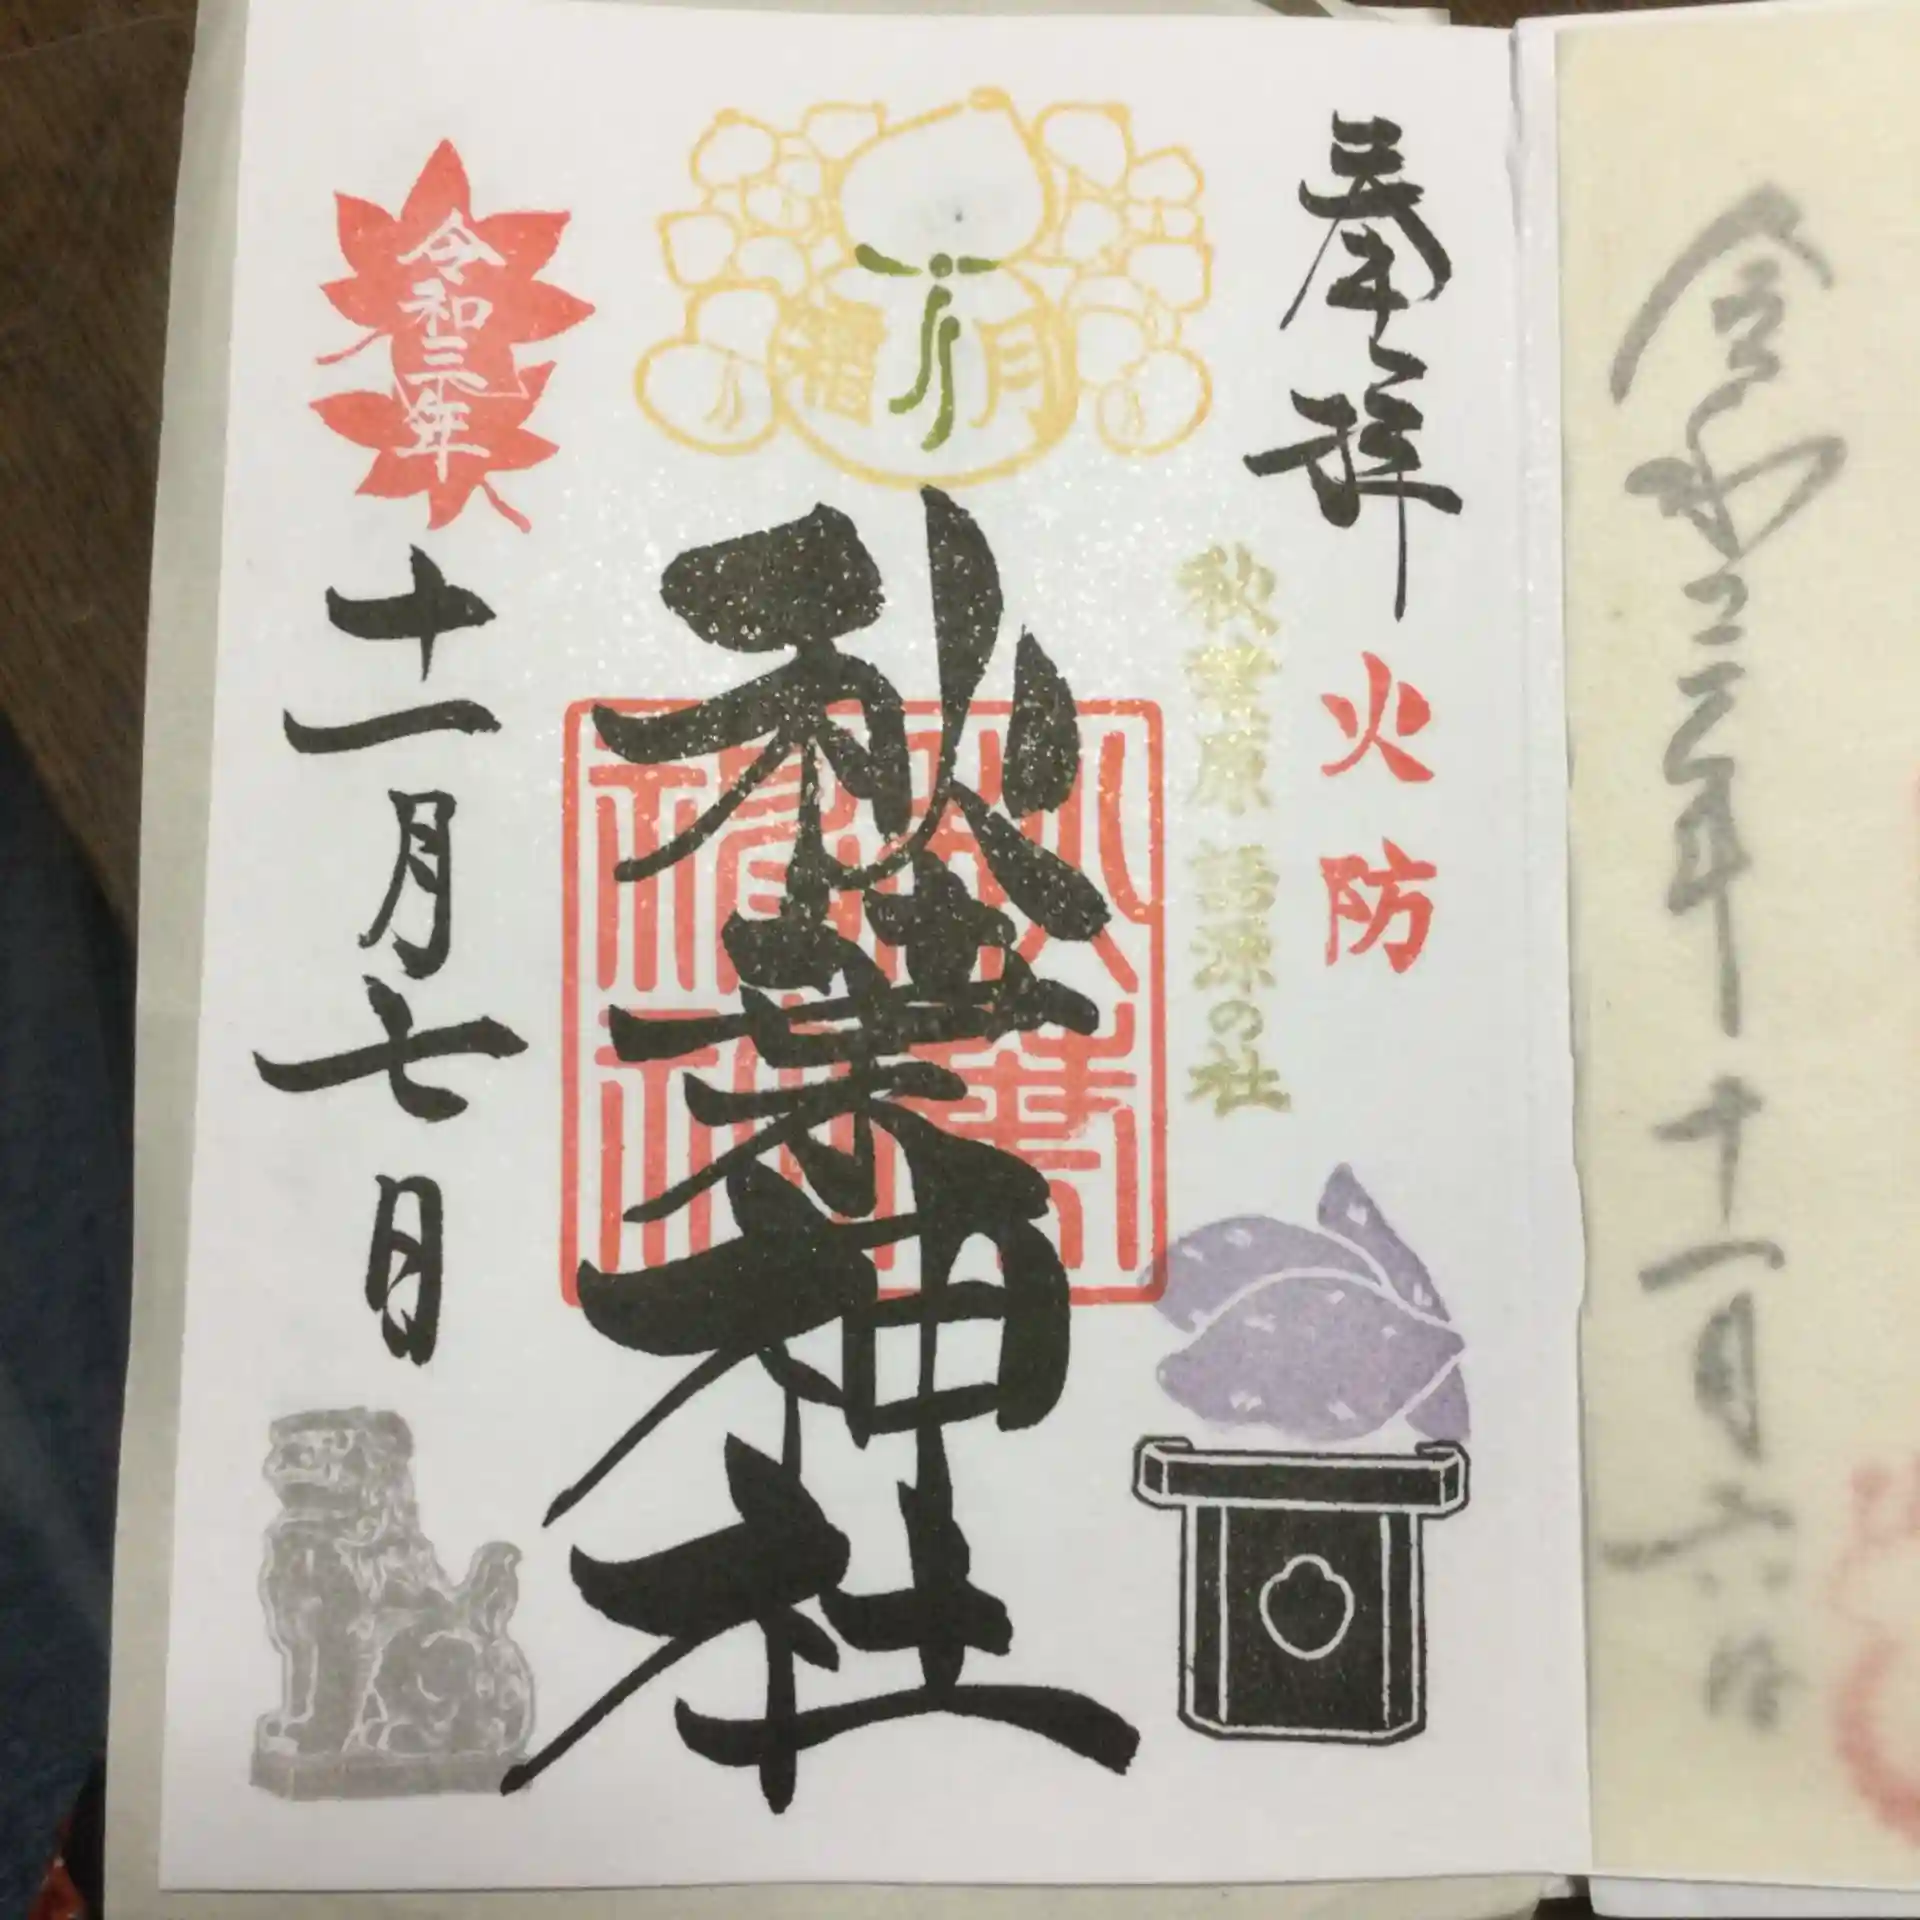 奉拝
火防
秋葉原 語源の社
福 月
秋葉神社
秋葉神社
令和三年
十一月七日
令和三年十一月六日